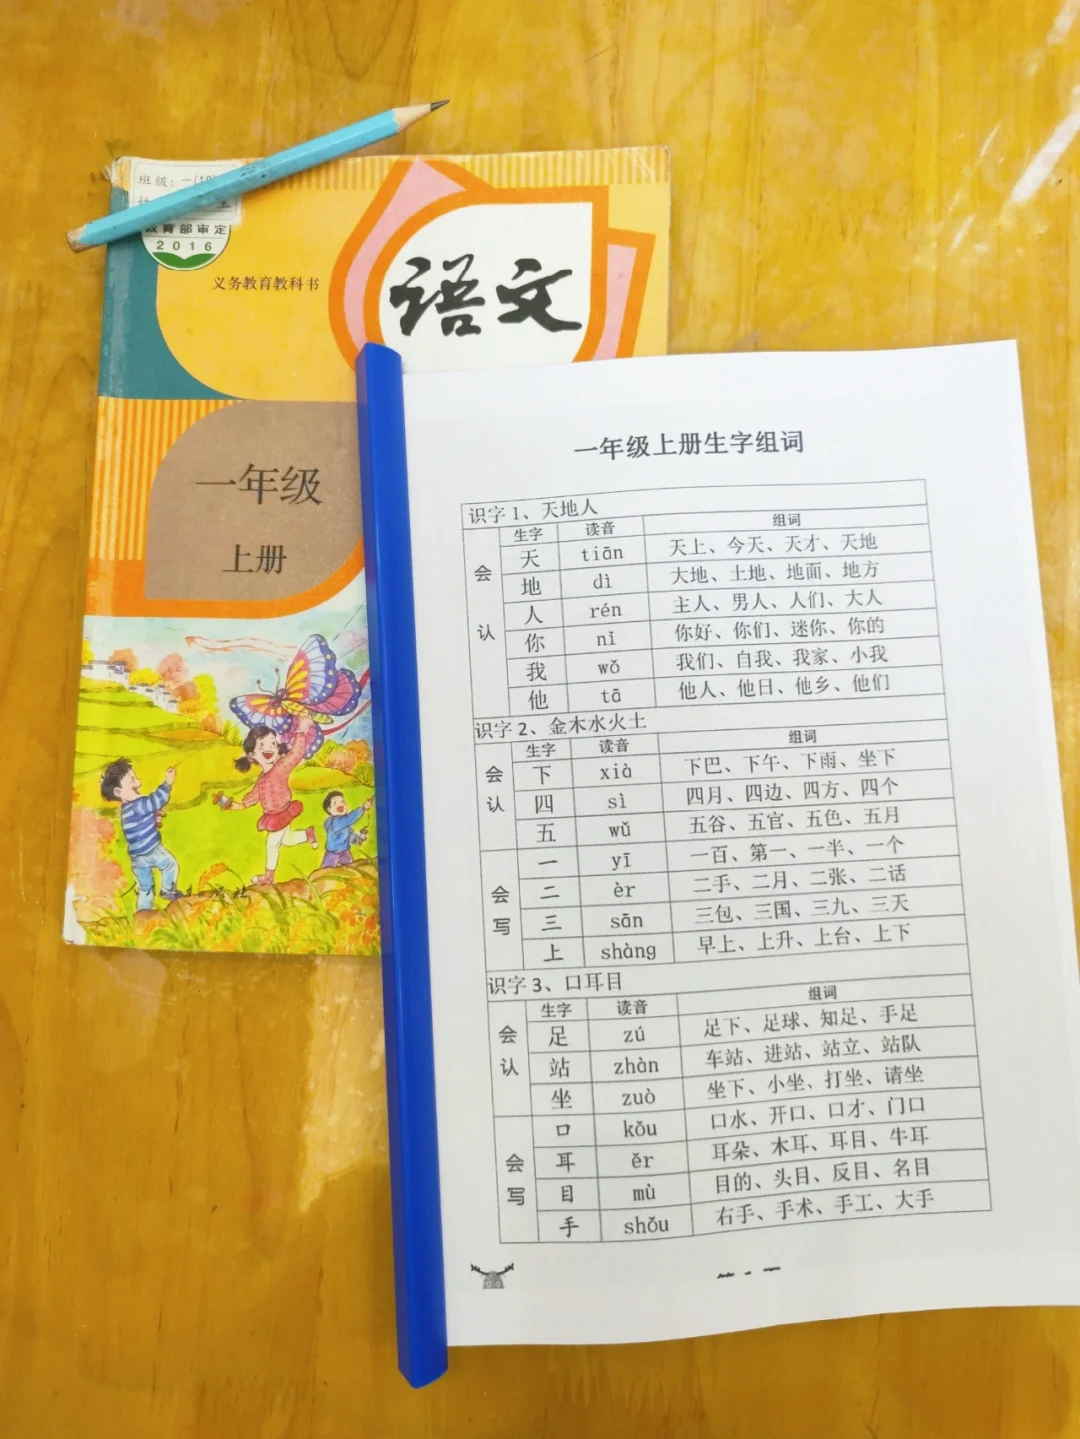 班级：一(10)
教育部审定
2016
义务教育教科书
语文
一年级
上册
人民教育出版社
一年级上册生字组词
识字1、天地人
会认
生字 读音 组词
天 tiān 天上、今天、天才、天地
地 dì 大地、土地、地面、地方
人 rén 主人、男人、人们、大人
你 nǐ 你好、你们、迷你、你的
我 wǒ 我们、自我、我家、小我
他 tā 他人、他日、他乡、他们
识字2、金木水火土
会认
生字 读音 组词
下 xià 下巴、下午、下雨、坐下
四 sì 四月、四边、四方、四个
五 wǔ 五谷、五官、五色、五月
会写
一 yī 一百、第一、一半、一个
二 èr 二手、二月、二张、二话
三 sān 三包、三国、三九、三天
上 shàng 早上、上升、上台、上下
识字3、口耳目
会认
生字 读音 组词
足 zú 足下、足球、知足、手足
站 zhàn 车站、进站、站立、站队
坐 zuò 坐下、小坐、打坐、请坐
会写
口 kǒu 口水、开口、口才、门口
耳 ěr 耳朵、木耳、耳目、牛耳
目 mù 目的、头目、反目、名目
手 shǒu 右手、手术、手工、大手